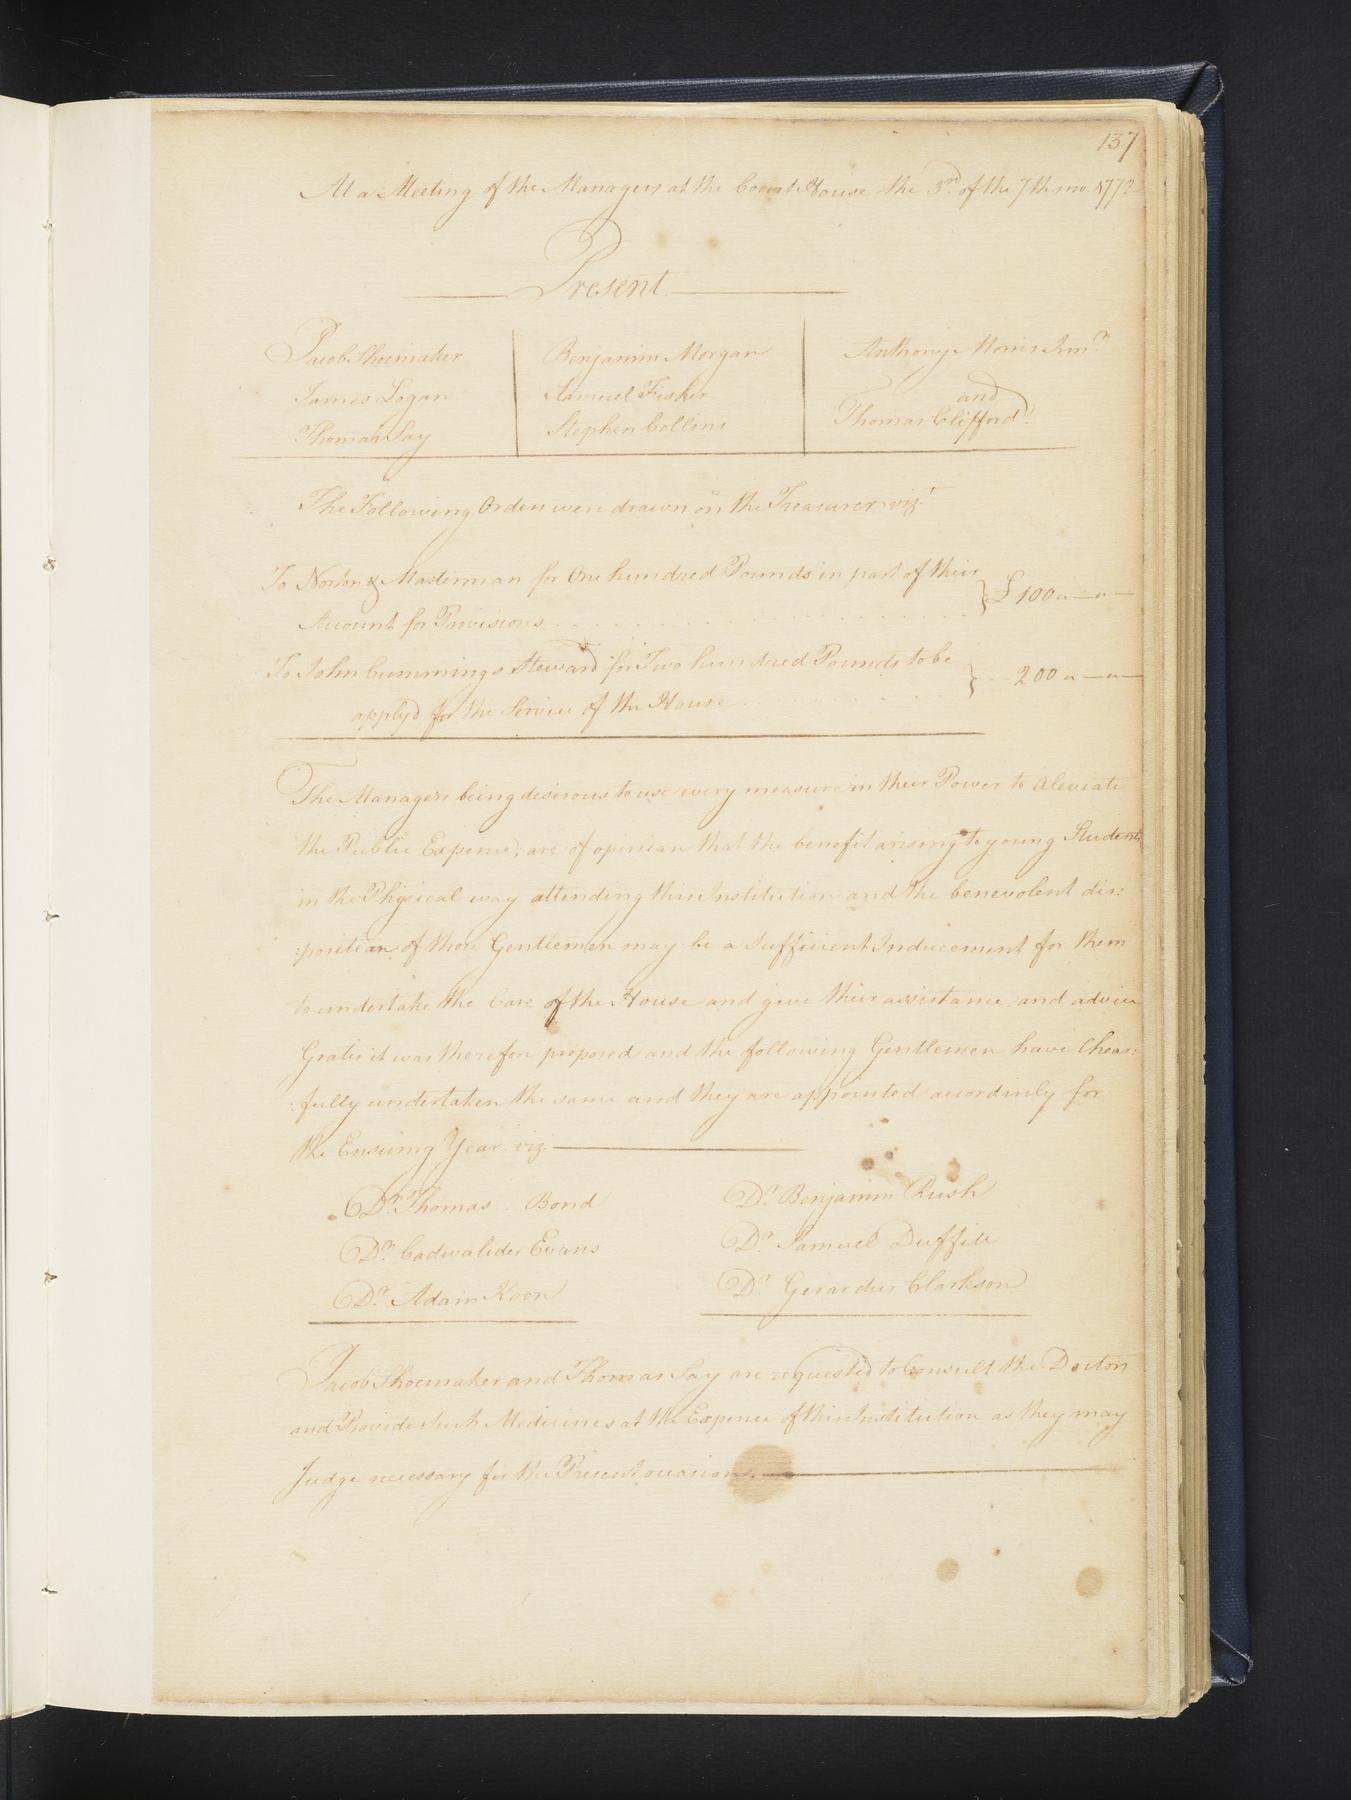 137
At a Meeting of the Managers at the Court House the 3rd. of the 7th mo. 1772
Present
Jacob Shoemaker
James Logan
Thomas Say
Benjamin Morgan
Samuel Fisher
Stephen Collins
Anthony Morris Junr.
and
Thomas Clifford.
The Following Orders were drawn on the Treasurer vizt.
To Norton & Masterman for One hundred Pounds in part of their
Account for Provisions
} £ 100 " — " —
To John Cummings Steward for Two hundred Pounds to be
applyd for the Service of the House
} 200 " — " —
The Managers being desirous to use every measure in their Power to Aleviate
the Public Expence, are of opinion that the benefit arising to young Students
in the Physical way attending this Institution and the benevolent dis:
:position of those Gentlemen may be a Sufficient Inducement for them
to undertake the Care of the House and give their assistance and advice
Gratis it was therefore proposed and the following Gentlemen have Chear:
:fully undertaken the same and they are appointed accordinly for
the Ensuing Year. viz.
Dr. Thomas Bond
Dr. Cadwalider Evans
Dr. Adam Koon
Dr. Benjamin Rush
Dr. Samuel Duffill
Dr. Gerardus Clarkson
Jacob Shoemaker and Thomas Say are requested to Consult the Doctors
and Provide such Medicines at the Expence of this Institution as they may
Judge necessary for the Present occasions.